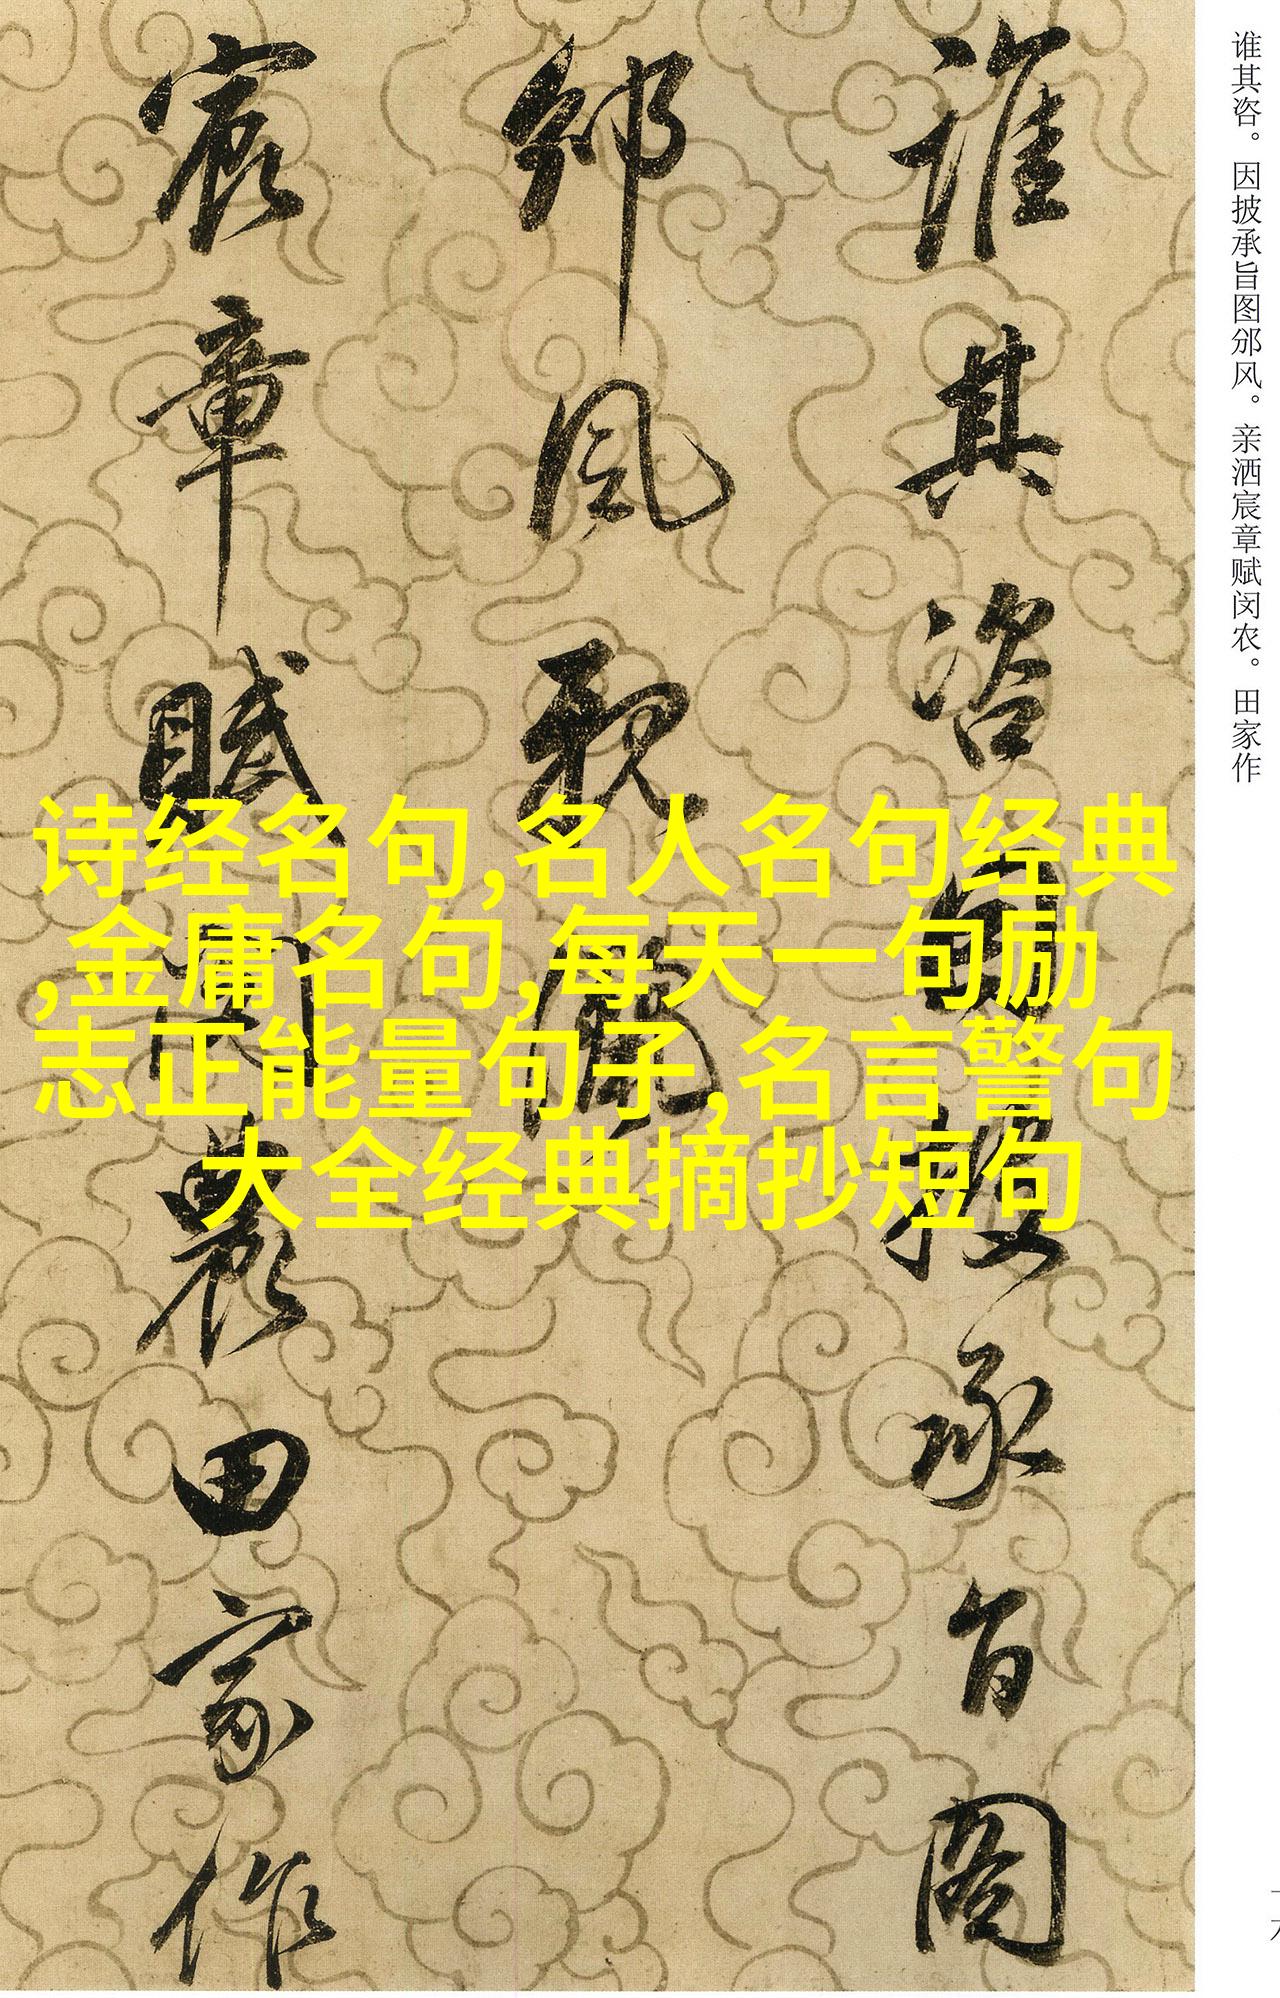 谁其咨。因披承旨图邠风。亲洒宸章赋闵农。田家作
誰其咨因披承旨圖
邠風親灑
宸章賦閔農田家作
诗经名句,名人名句经典
,金庸名句,每天一句励
志正能量句子,名言警句
大全经典摘抄短句